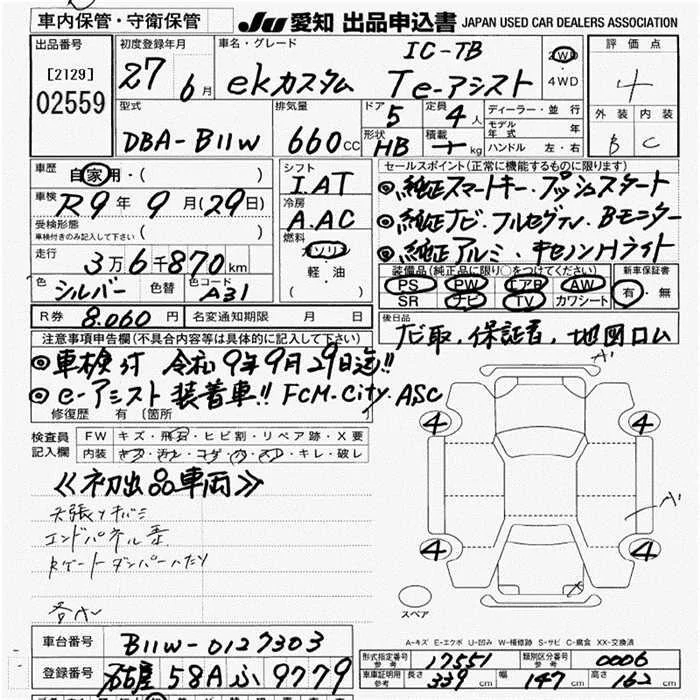 車内保管・守衛保管
JU 愛知 出品申込書 JAPAN USED CAR DEALERS ASSOCIATION
出品番号
[2129]
02559
初度登録年月
27 6月
車名・グレード
IC-TB
ekカスタム Te-アシスト
2WD
・
4WD
評価点
4
外装 内装
B C
型式
DBA-B11W
排気量
660cc
ドア
5
定員
4人
形状
HB
積載
kg
ディーラー・並行
モデル年式 年
ハンドル 左・右
車歴
自家用・( )
車検
R9年9月(29日)
受検形態
車検付きのみ記入して下さい ( )
走行
3万6千870km
色
シルバー
色替
色コード
A31
シフト
IAT
冷房
A.AC
燃料
ガソリン
軽・油
( )
セールスポイント(正常に機能するものに限ります)
◎純正スマートキー・プッシュスタート
◎純正ナビ・フルセグTV・Bモニター
◎純正アルミ・キセノンHライト
装備品(純正品に限り○をつけてください)
PS PW エアB AW
SR ナビ TV カワシート
新車保証書
有・無
R券 8.060円
名変通知期限 月 日
後日品
ナビ取.保証書.地図ロム
注意事項申告欄(不具合内容等は具体的に記入して下さい)
◎車検付 令和9年9月29日迄!!
◎e-アシスト装着車!! FCM-City.ASC
修復歴 有 〔箇所
検査員
記入欄
FW キズ・飛石・ヒビ割・リペア跡・X要
内装 キズ・汚レ・コゲ・穴・スレ・キレ・破レ
≪初出品車両≫
天張りキバミ
エンドパネル歪
Rゲートダンパーへたり
各A
A1
4 4
A1
4 4
X
スペア
A-キズ E-エクボ U-凹み W-補修跡 S-サビ C-腐食 XX-交換済
車台番号
B11W-0127303
登録番号
名古屋 58A ふ 9779
形式指定番号 参考
17551
類別区分番号 参考
0006
車庫証明用 参考
長さ 339cm 幅 147cm 高さ 162cm